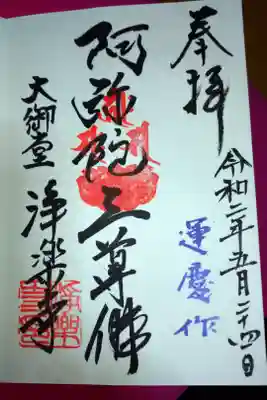 奉拝
令和二年五月二十四日
運慶作
阿弥陀三尊佛
大御堂
浄楽寺